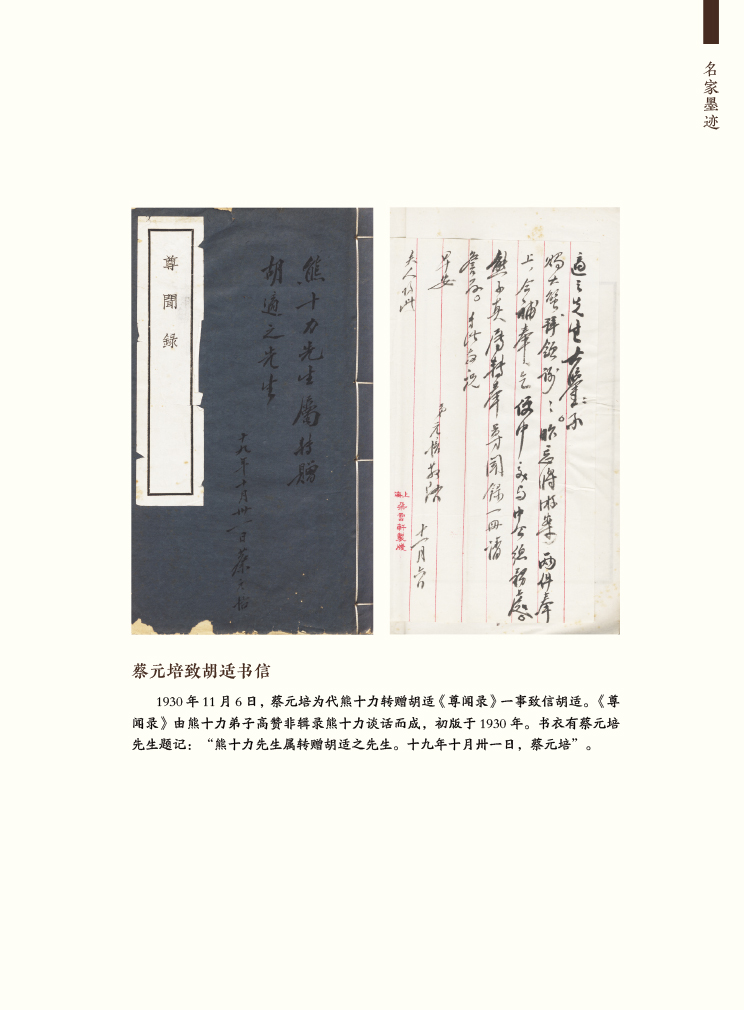 名家墨迹
尊聞録
熊十力先生屬转贈
胡適之先生
十九年十月卅一日蔡元培
適之先生大鑒：承
賜大蟹，拜領，謝謝。昨忘將
兩件奉
上，今補奉，乞便中
熊子真屬轉奉尊聞録一冊，請
詧存。專此，
早安
夫人均此
弟元培敬啓
十一月六日
上海
朵雲軒製牋
蔡元培致胡适书信
1930 年 11 月 6 日，蔡元培为代熊十力转赠胡适《尊闻录》一事致信胡适。《尊
闻录》由熊十力弟子高赞非辑录熊十力谈话而成，初版于 1930 年。书衣有蔡元培
先生题记：“熊十力先生属转赠胡适之先生。十九年十月卅一日，蔡元培”。